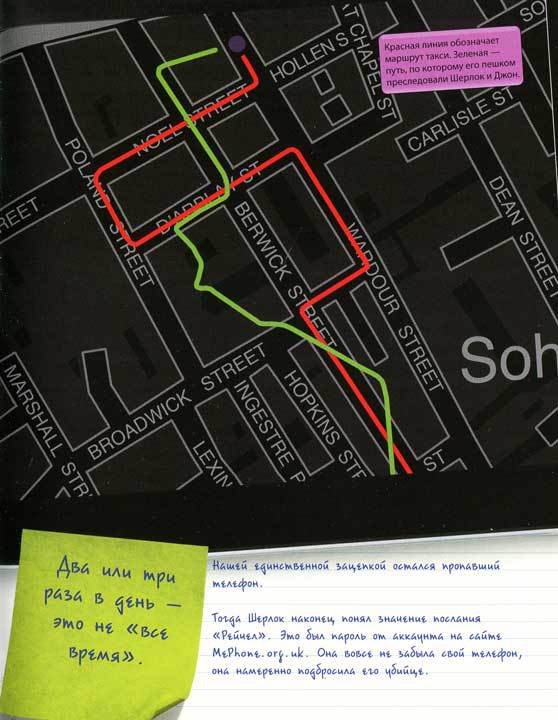 SO
Красная линия обозначает
маршрут такси. Зеленая —
путь, по которому его пешком
преследовали Шерлок и Джон.
HOLLEN S
T CHAPEL ST
NOEL STREET
CARLISLE ST
POLAND STREET
D'ARBLAY ST
REET
BERWICK STREET
WARDOUR STREET
DEAN STREE
Soh
BROADWICK STREET
MARSHALL STR
HOPKINS STR
INGESTRE P
LEXIN
ST
Два или три
раза в день —
это не «все
время».
Нашей единственной зацепкой остался пропавший
телефон.
Тогда Шерлок наконец понял значение послания
«Рейчел». Это был пароль от аккаунта на сайте
MePhone.org.uk. Она вовсе не забыла свой телефон,
она намеренно подбросила его убийце.